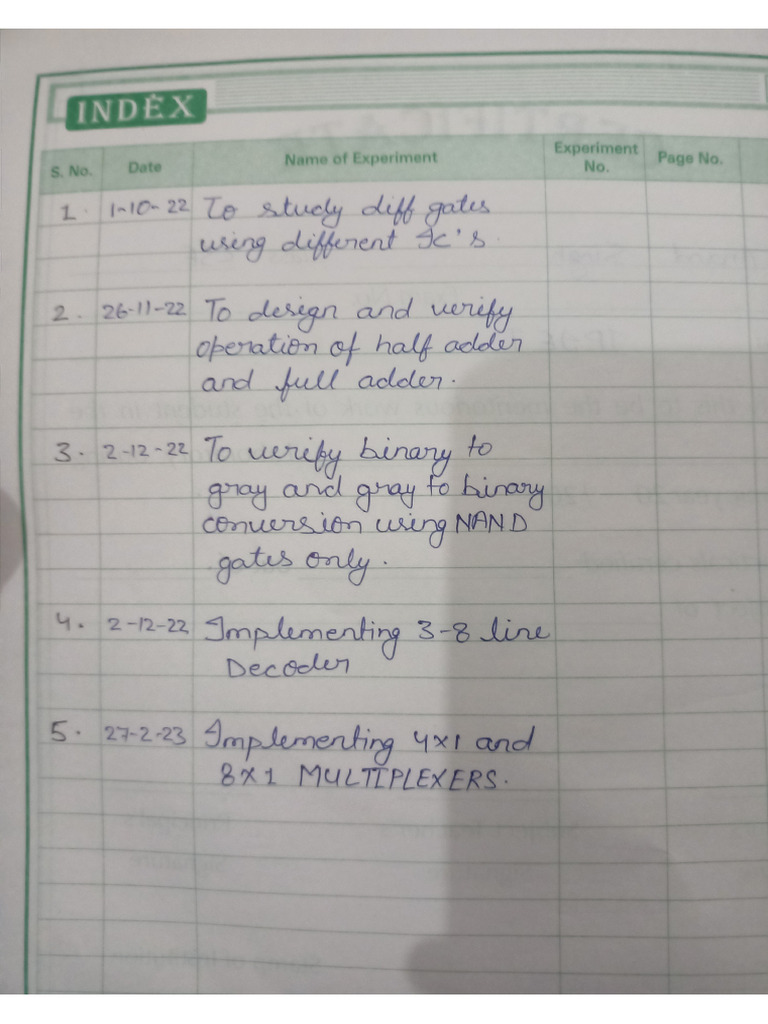 INDEX
S. No. Date Name of Experiment Experiment No. Page No.
1. 1-10-22 To study diff gates
using different Ic's.
2. 26-11-22 To design and verify
operation of half adder
and full adder.
3. 2-12-22 To verify binary to
gray and gray to binary
conversion using NAND
gates only.
4. 2-12-22 Implementing 3-8 line
Decoder
5. 27-2-23 Implementing 4x1 and
8x1 MULTIPLEXERS.